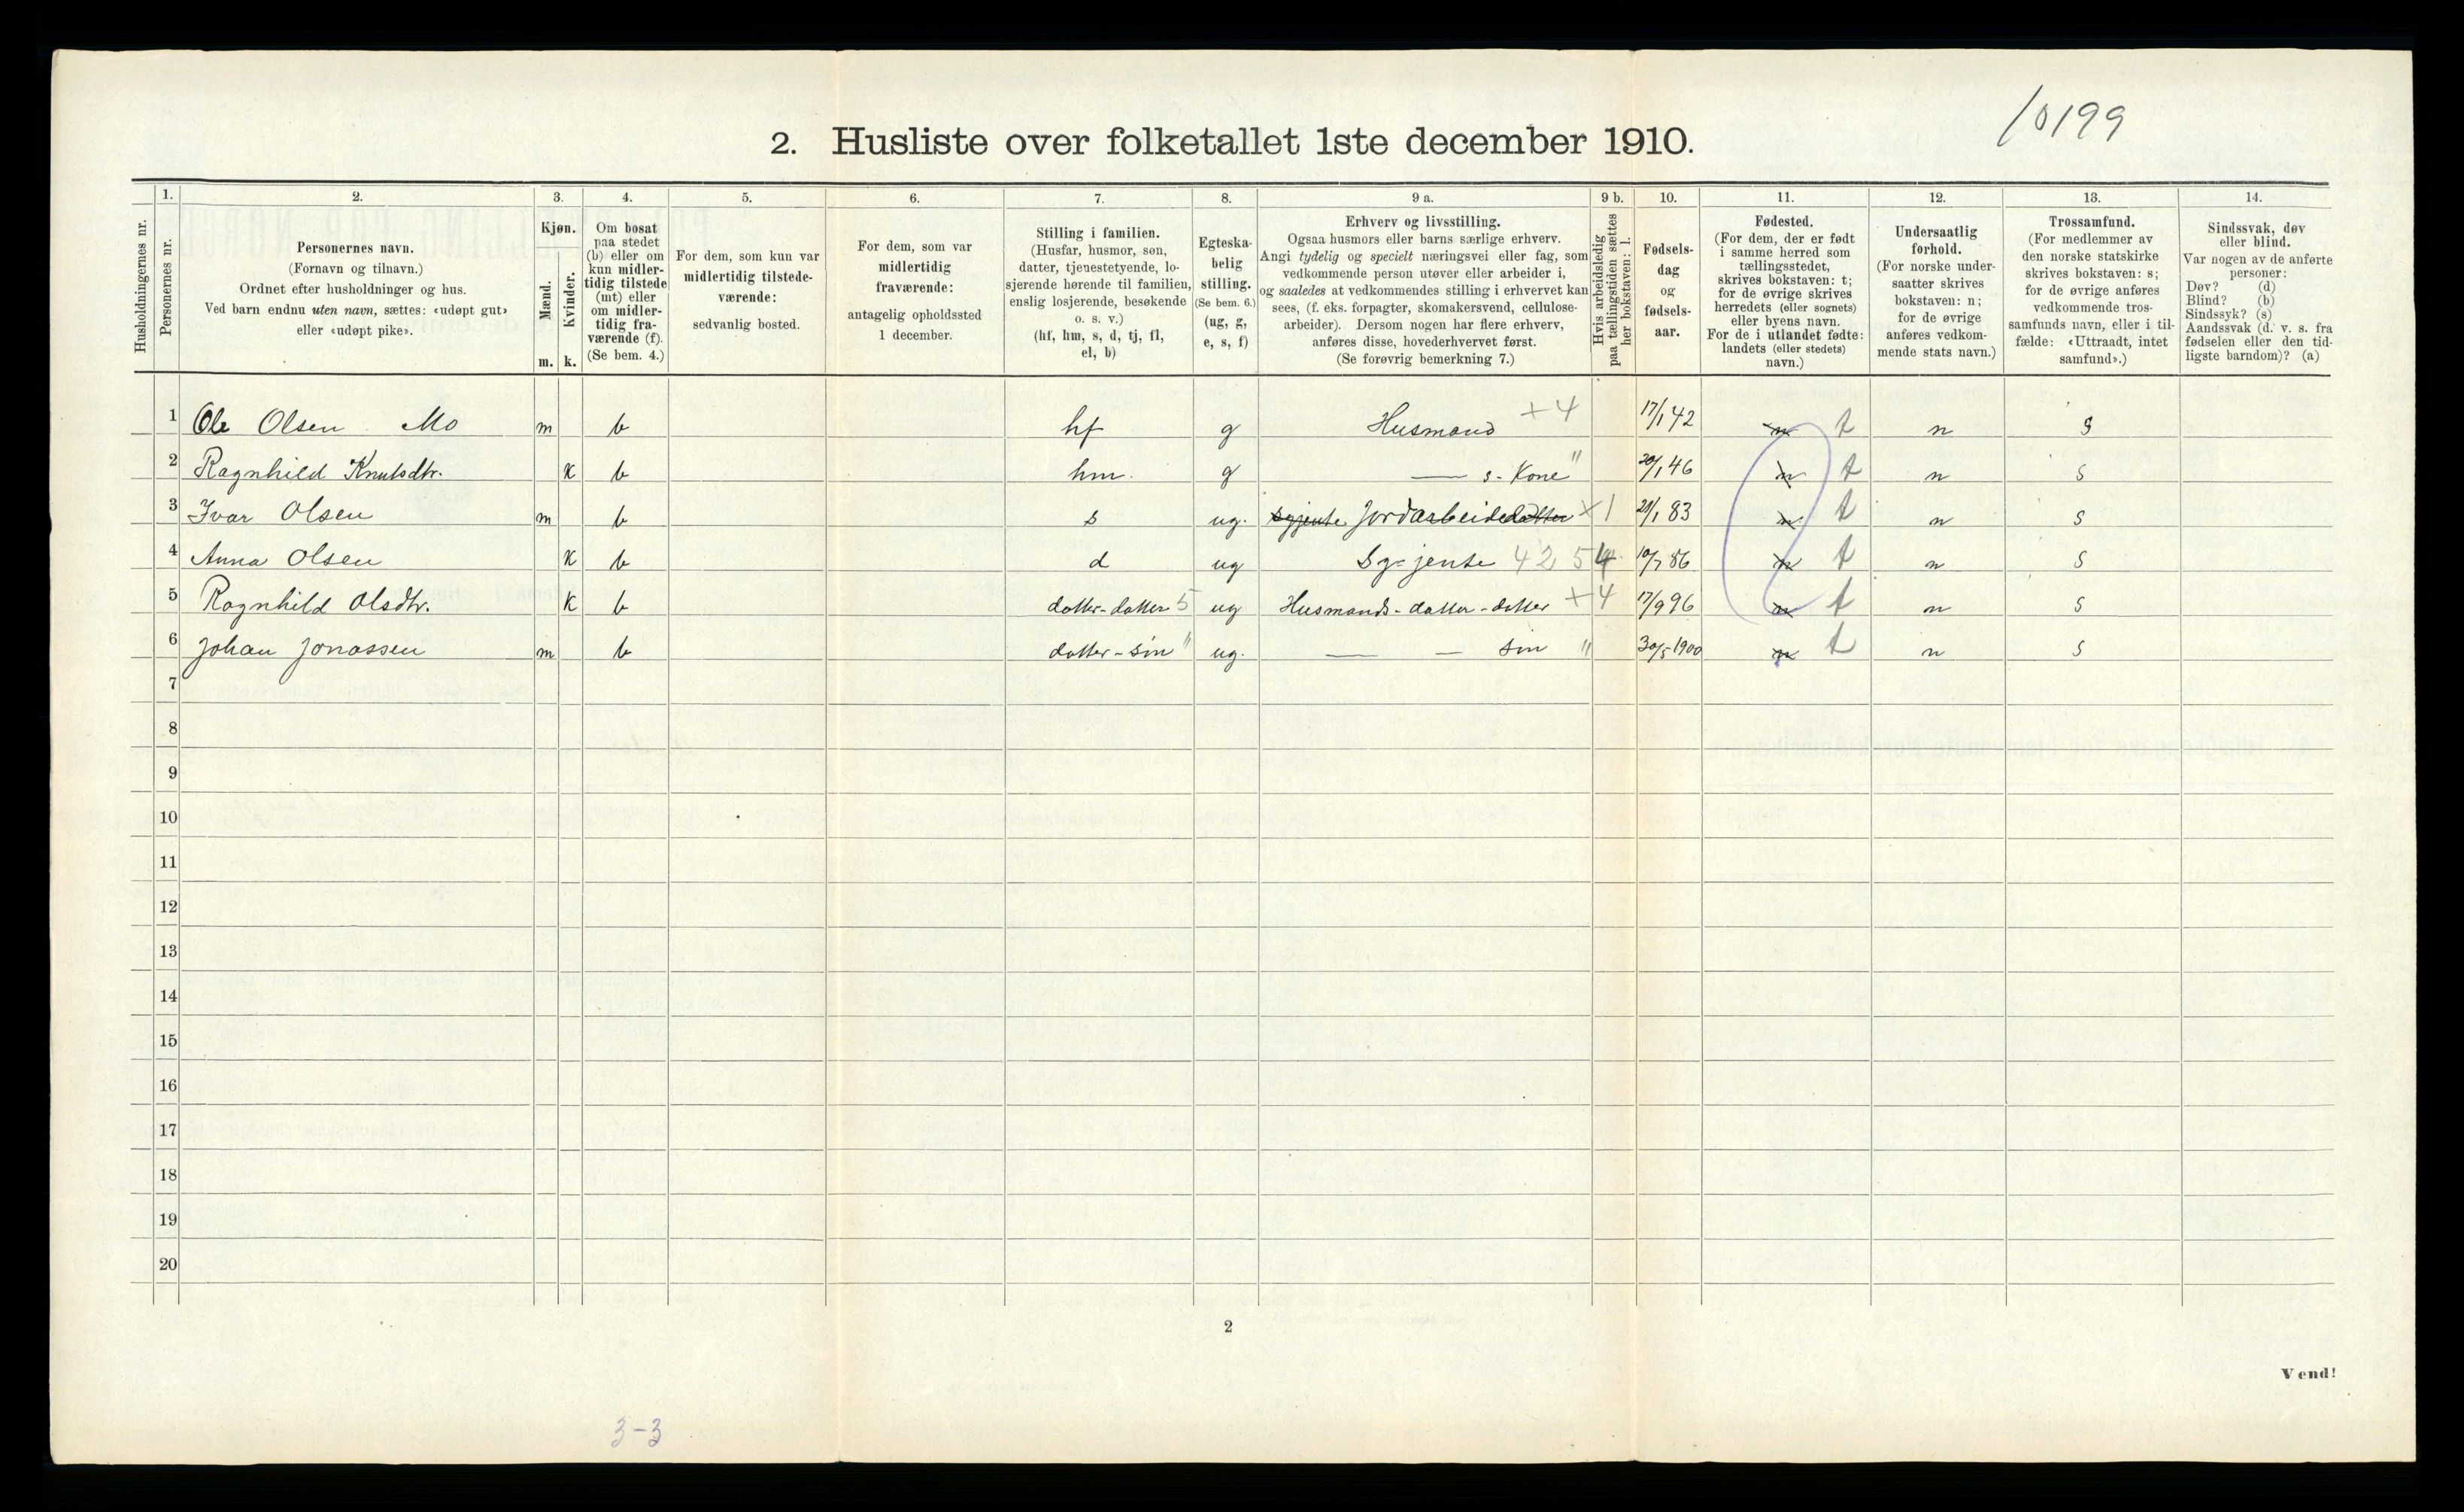 10199
2. Husliste over folketallet 1ste december 1910.
Husholdningernes nr.
1.
Personernes nr.
2.
Personernes navn.
(Fornavn og tilnavn.)
Ordnet efter husholdninger og hus.
Ved barn endnu uten navn, sættes: «udøpt gut»
eller «udøpt pike».
3.
Kjøn.
Mænd.
Kvinder.
m. k.
4.
Om bosat
paa stedet
(b) eller om
kun midler-
tidig tilstede
(mt) eller
om midler-
tidig fra-
værende (f).
(Se bem. 4.)
5.
For dem, som kun var
midlertidig tilstede-
værende:
sedvanlig bosted.
6.
For dem, som var
midlertidig
fraværende:
antagelig opholdssted
1 december.
7.
Stilling i familien.
(Husfar, husmor, søn,
datter, tjenestetyende, lo-
sjerende hørende til familien,
enslig losjerende, besøkende
o. s. v.)
(hf, hm, s, d, tj, fl,
el, b)
8.
Egteska-
belig
stilling.
(Se bem. 6.)
(ug, g,
e, s, f)
9 a.
Erhverv og livsstilling.
Ogsaa husmors eller barns særlige erhverv.
Angi tydelig og specielt næringsvei eller fag, som
vedkommende person utøver eller arbeider i,
og saaledes at vedkommendes stilling i erhvervet kan
sees, (f. eks. forpagter, skomakersvend, cellulose-
arbeider). Dersom nogen har flere erhverv,
anføres disse, hovederhvervet først.
(Se forøvrig bemerkning 7.)
9 b.
Hvis arbeidsledig
paa tællingstiden sættes
her bokstaven: l.
10.
Fødsels-
dag
og
fødsels-
aar.
11.
Fødested.
(For dem, der er født
i samme herred som
tællingsstedet,
skrives bokstaven: t;
for de øvrige skrives
herredets (eller sognets)
eller byens navn.
For de i utlandet fødte:
landets (eller stedets)
navn.)
12.
Undersaatlig
forhold.
(For norske under-
saatter skrives
bokstaven: n;
for de øvrige
anføres vedkom-
mende stats navn.)
13.
Trossamfund.
(For medlemmer av
den norske statskirke
skrives bokstaven: s;
for de øvrige anføres
vedkommende tros-
samfunds navn, eller i til-
fælde: «Uttraadt, intet
samfund».)
14.
Sindssvak, døv
eller blind.
Var nogen av de anførte
personer:
Døv? (d)
Blind? (b)
Sindssyk? (s)
Aandssvak (d. v. s. fra
fødselen eller den tid-
ligste barndom)? (a)
1 Ole Olsen Mo m b hf g Husmand +4 17/1 42 n t n s
2 Ragnhild Knutsdtr. k b hm. g — s- Kone " 20/1 46 n t n s
3 Ivar Olsen m b s ug. Syjente Jordarbeide datter ×1 21/1 83 n t n s
4 Anna Olsen k b d ug Sy-jente 4254 10/7 86 n t n s
5 Ragnhild Olsdtr. k b datter-datter 5 ug Husmands-datter-datter +4 17/9 96 n t n s
6 Johan Jonassen m b datter-sön " ug. — — sön " 30/5 1900 n t n s
7
8
9
10
11
12
13
14
15
16
17
18
19
20
2
Vend!
3-3